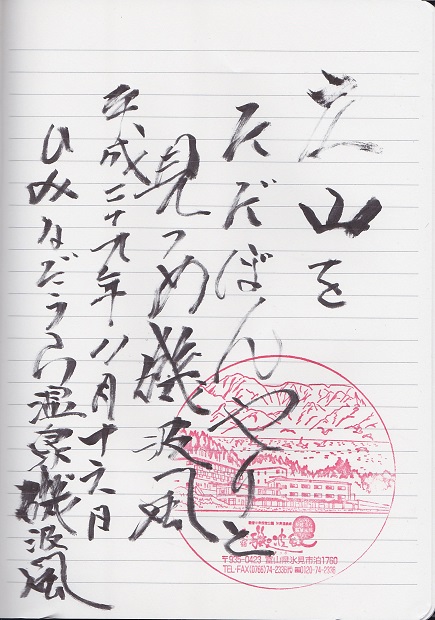 立山を
ただぼんやりと
見つめ磯波風
平成二十九年八月十六日
ひみなだうら温泉磯波風
磯波風
〒935-0423 富山県氷見市泊1760
TEL・FAX(0766)74-2336代 0120-74-2336